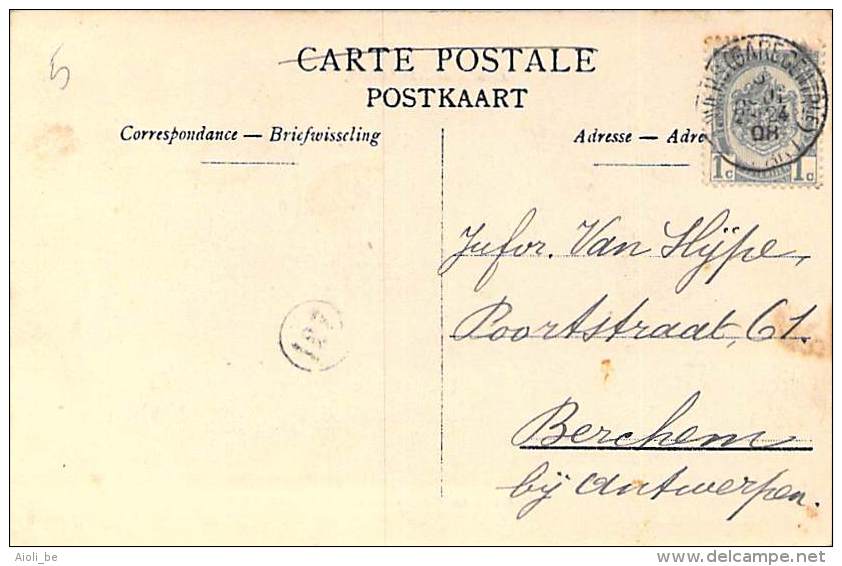 5
CARTE POSTALE
POSTKAART
Correspondance — Briefwisseling
Adresse — Adre
(GARE CENTRALE)
08
1c 1c
Jufvr. Van Hÿfte,
Poortstraat, 61.
Berchem
bÿ Antwerpen.
Aioli_be
delcampe.net